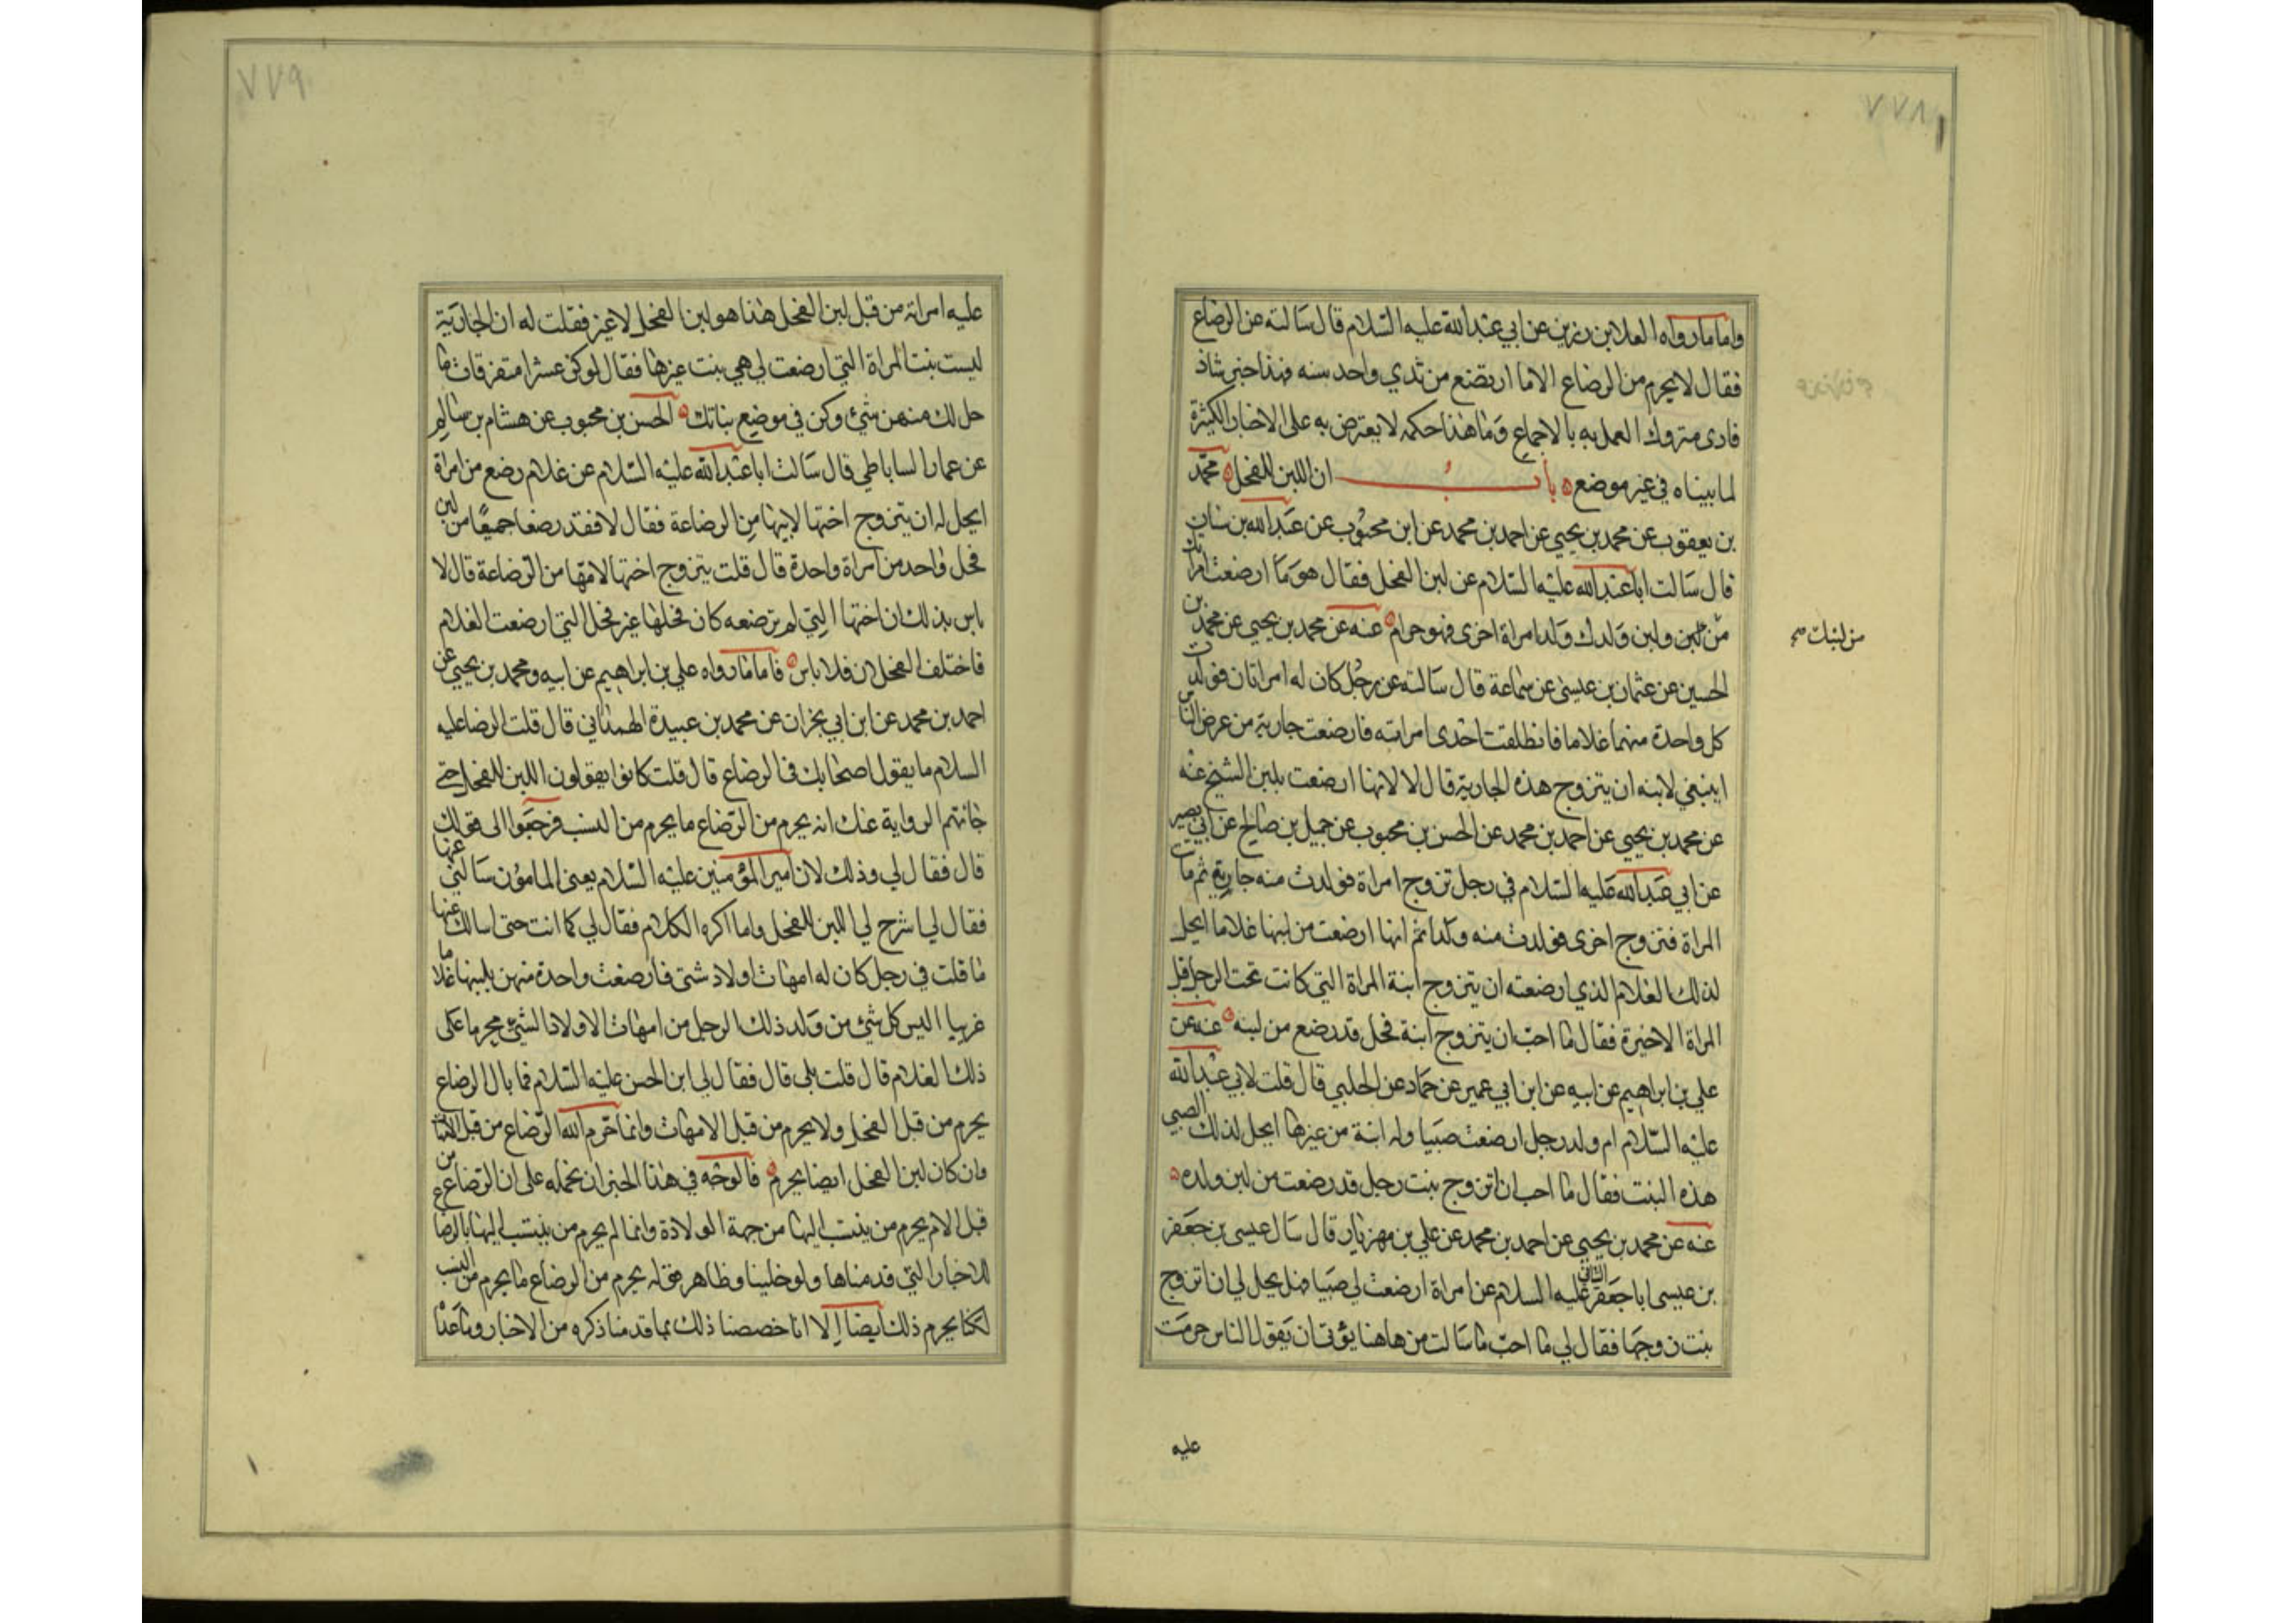 ٧٧٨
واما ما رواه العلا بن رزين عن ابي عبد الله عليه السلام قال سالته عن الرضاع
فقال لا يحرم من الرضاع الا ما ارتضع من ثدي واحد سنه فهذا خبر شاذ
نادر متروك العمل به بالاجماع وما هذا حكمه لا يعترض به على الاخبار الكثيرة
لما بيناه في غير موضع باب ان اللبن للفحل محمد
بن يعقوب عن محمد بن يحيى عن احمد بن محمد عن ابن محبوب عن عبد الله بن سنان
قال سالت ابا عبد الله عليه السلام عن لبن الفحل فقال هو ما ارضعت امراتك
من لبن ولبن ولدك ولد امراة اخرى فهو حرام عنه عن محمد بن يحيى عن محمد بن
من لبنك صح
الحسين عن عثمان بن عيسى عن سماعة قال سالته عن رجل كان له امراتان فولدت
كل واحدة منهما غلاما فانطلقت احدى امراته فارضعت جارية من عرض الناس
اينبغي لابنه ان يتزوج هذه الجارية قال لا لانها ارضعت بلبن الشيخ عنه
عن محمد بن يحيى عن احمد بن محمد عن الحسن بن محبوب عن جميل بن صالح عن ابي بصير
عن ابي عبد الله عليه السلام في رجل تزوج امراة فولدت منه جارية ثم ماتت
المراة فتزوج اخرى فولدت منه ولدا ثم انها ارضعت من لبنها غلاما ايحل
لذلك الغلام الذي ارضعته ان يتزوج ابنة المراة التي كانت تحت الرجل قبل
المراة الاخيرة فقال ما احب ان يتزوج ابنة فحل قد رضع من لبنه عنه عن
علي بن ابراهيم عن ابيه عن ابن ابي عمير عن حماد عن الحلبي قال قلت لابي عبد الله
عليه السلام ام ولد رجل ارضعت صبيا وله ابنة من غيرها ايحل لذلك الصبي
هذه البنت فقال ما احب ان اتزوج بنت رجل قد رضعت من لبن ولده
عنه عن محمد بن يحيى عن احمد بن محمد عن علي بن مهزيار قال سال عيسى بن جعفر
بن عيسى ابا جعفر الثاني عليه السلام عن امراة ارضعت لي صبيا فهل يحل لي ان اتزوج
بنت زوجها فقال لي ما احب ما سالت من هاهنا يؤتى ان يقول الناس حرمت
عليه
٧٧٩
عليه امراته من قبل لبن الفحل هذا هو لبن الفحل لا غير فقلت له ان الجارية
ليست بنت المراة التي ارضعت لي هي بنت غيرها فقال لو كن عشرا متفرقات ما
حل لك منهن شئ وكن في موضع بناتك الحسن بن محبوب عن هشام بن سالم
عن عمار الساباطي قال سالت ابا عبد الله عليه السلام عن غلام رضع من امراة
ايحل له ان يتزوج اختها لابيها من الرضاعة فقال لا فقد رضعا جميعا من لبن
فحل واحد من امراة واحدة قال قلت يتزوج اختها لامها من الرضاعة قال لا
باس بذلك ان اختها التي لم ترضعه كان فحلها غير فحل التي ارضعت الغلام
فاختلف الفحلان فلا باس فاما ما رواه علي بن ابراهيم عن ابيه ومحمد بن يحيى عن
احمد بن محمد عن ابن ابي نجران عن محمد بن عبيدة الهمداني قال قلت الرضا عليه
السلام ما يقول اصحابك في الرضاع قال قلت كانوا يقولون اللبن للفحل حتى
جائتهم الرواية عنك انه يحرم من الرضاع ما يحرم من النسب فرجعوا الى قولك
قال فقال لي وذلك لان امير المؤمنين عليه السلام يعنى المامون سالني عنها
فقال لي اشرح لي اللبن للفحل وانا اكره الكلام فقال لي كما انت حتى اسالك عنها
ما قلت في رجل كان له امهات اولاد شتى فارضعت واحدة منهن بلبنها غلاما
غريبا اليس كل شئ من ولد ذلك الرجل من امهات الاولاد الشتى محرما على
ذلك الغلام قال قلت بلى قال فقال لي ابن الحسن عليه السلام فما بال الرضاع
يحرم من قبل الفحل ولا يحرم من قبل الامهات وانما حرم الله الرضاع من قبل الامهات
وان كان لبن الفحل ايضا يحرم فالوجه في هذا الخبر ان نحمله على ان الرضاع من
قبل الام يحرم من ينتسب اليها من جهة الولادة وانما لم يحرم من ينتسب اليها بالرضاع
للاخبار التي قدمناها ولو خلينا وظاهر قوله يحرم من الرضاع ما يحرم من النسب
لكنا يحرم ذلك ايضا الا انا خصصنا ذلك بما قدمنا ذكره من الاخبار وما عداه